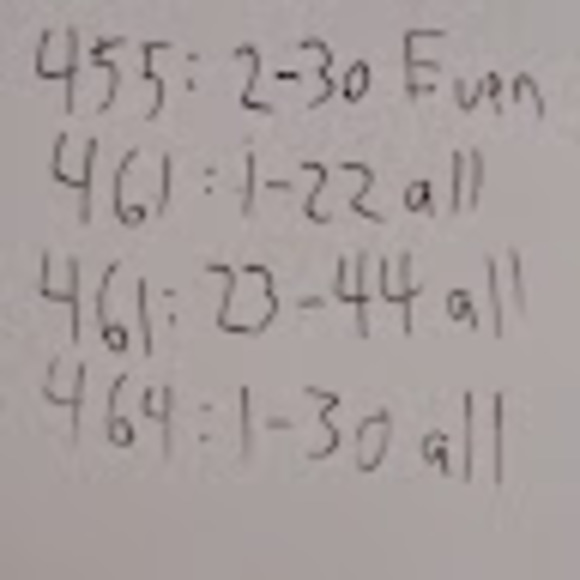 455: 2-30 Even
461: 1-22 all
461: 23-44 all
464: 1-30 all